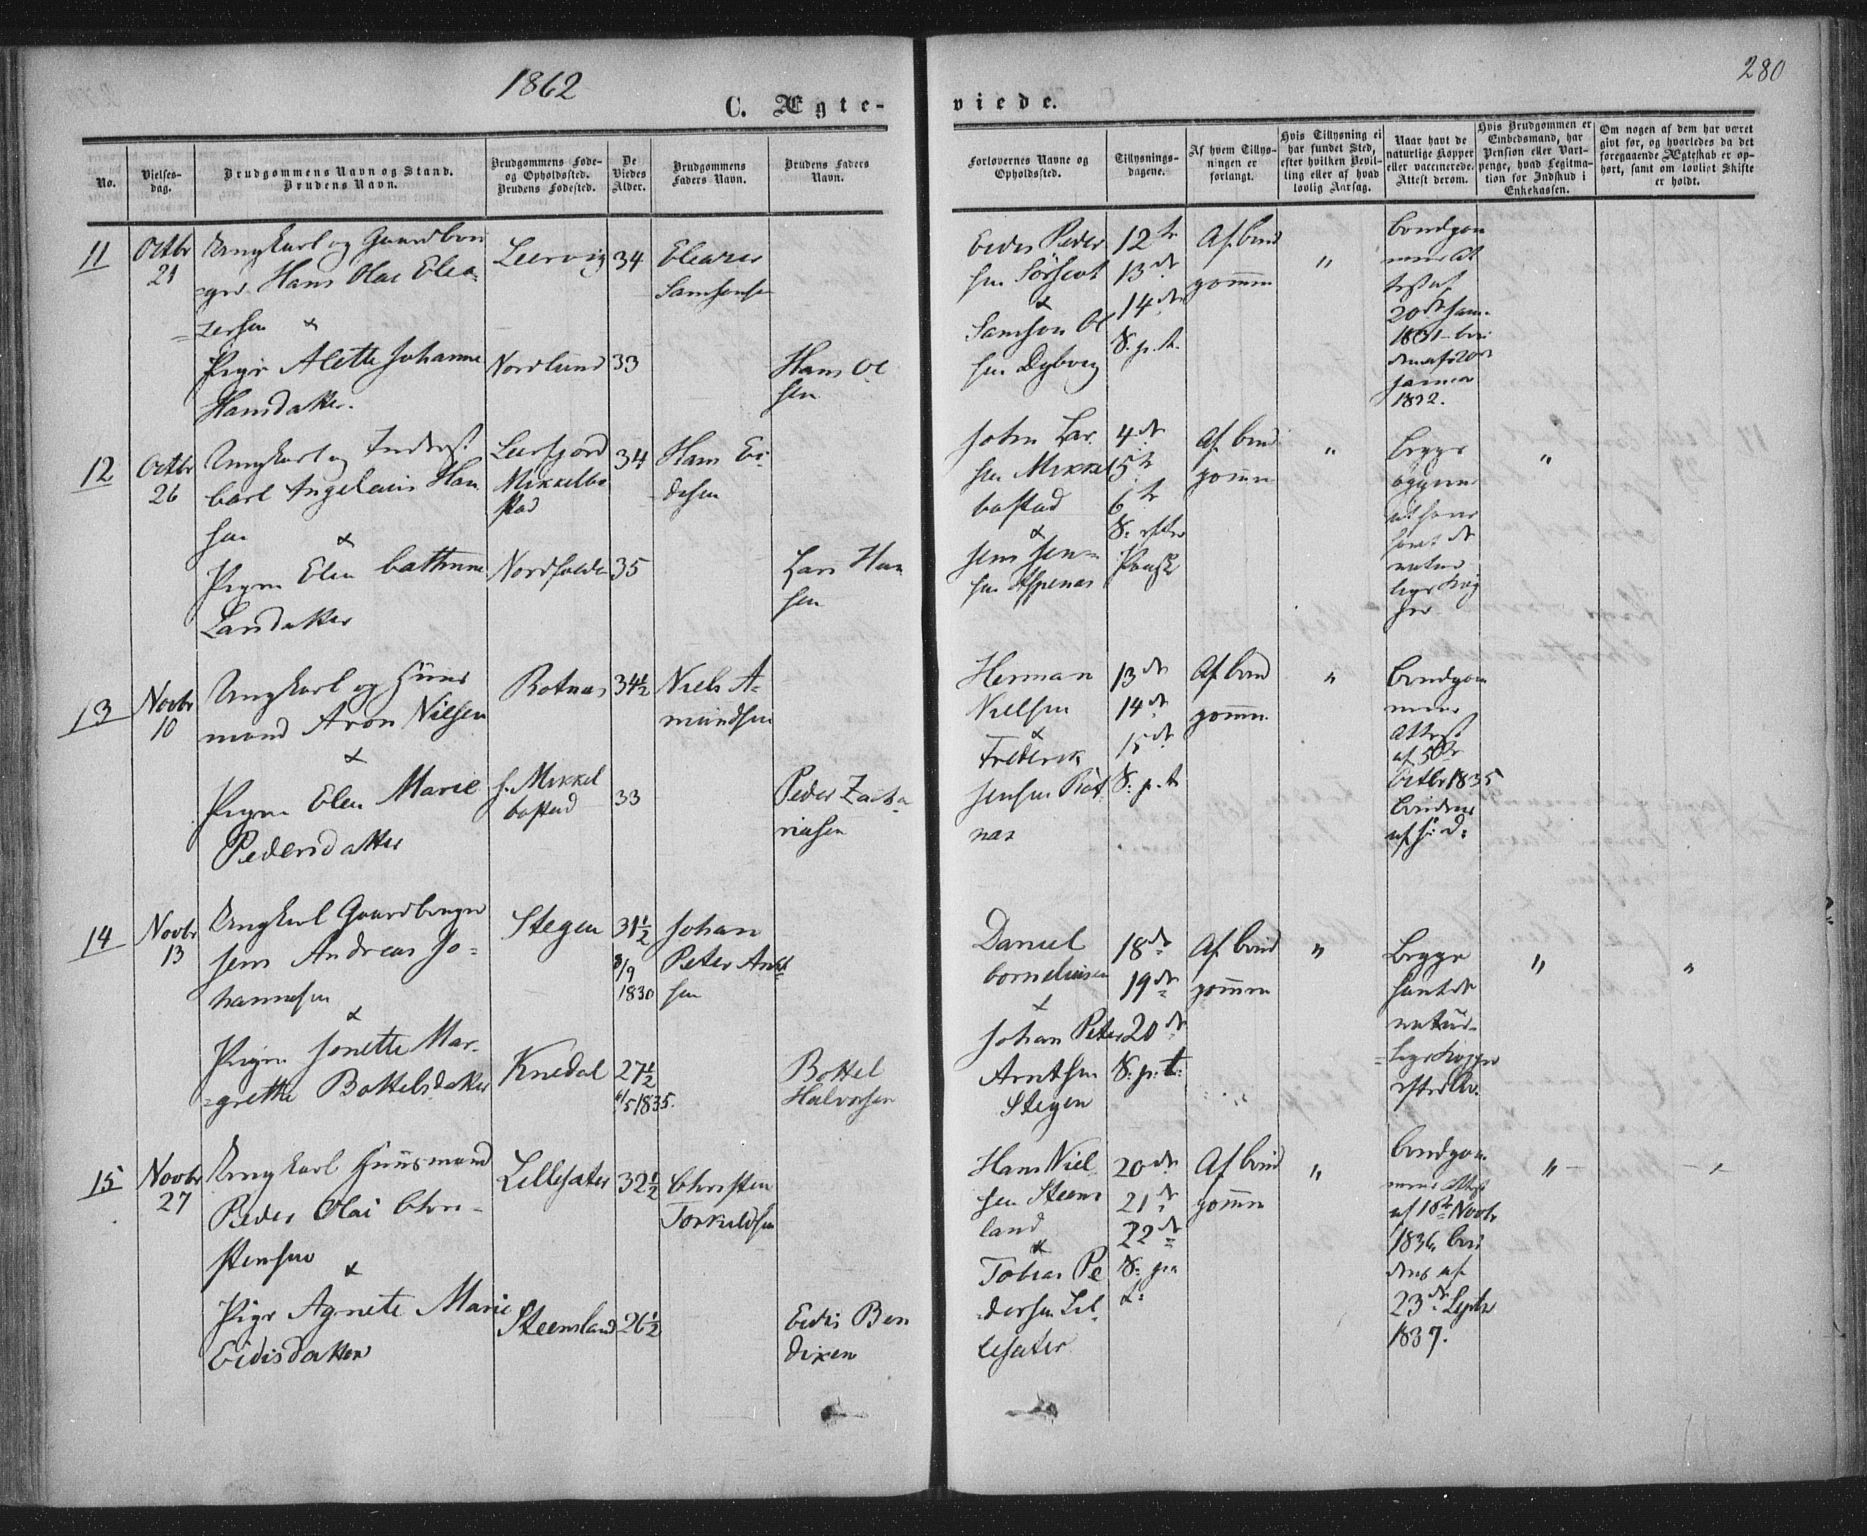 1862
280
C. Ægte-
viede.
No.
Vielses-
dag.
Brudgommens Navn og Stand.
Brudens Navn.
Brudgommens Føde-
og Opholdssted.
Brudens Fødested.
De
Viedes
Alder.
Brudgommens
Faders Navn.
Brudens Faders
Navn.
Forlovernes Navne og
Opholdssted.
Tillysnings-
dagene.
Af hvem Tillys-
ningen er
forlangt.
Hvis Tillysning ei
har fundet Sted,
efter hvilken Bevil-
ling eller af hvad
lovlig Aarsag.
Naar havt de
naturlige Kopper
eller vaccinerede.
Attest derom.
Hvis Brudgommen er
Embedsmand, har
Pension eller Vart-
penge, hvad Legitima-
tion for Indskud i
Enkekassen.
Om nogen af dem har været
givt før, og hvorledes da det
foregaaende Ægteskab er op-
hørt, samt om lovligt Skifte
er holdt.
11
Octbr
21
Ungkarl og Gaardbru
ger Hans Olai Elea-
=zersen &
Pige Alette Johanna
Hansdatter.
Leervig
Nordlund
34
33
Eleazer
Samsonsen
Hans Ol
sen
Eedis Peder
sen Sörskot
&
Samson Ol
sen Dybvig
12te
13de
14de
S. p. t.
Af brud
gommen
"
Brudgom
mens At
test af
20de Jan.
1831 - bru
dens af 20de
Januar
1832.
12
Octbr
26
Ungkarl og Inderst
Carl Ingelaus Han
sen &
Pigen Elen Cathrine
Larsdatter
Leerfjord
Mikkelbo
stad
Nordfolden
34
35
Hans Ei-
disen
Lars Han
sen
John Lar
sen Mikkel
bostad
&
Jens Jen=
sen Aspenæs
4de
5te
6te
S. efter
Paaske
Af brud
gommen
"
Begge
natur
lige Kop
per
"
13
Novbr
10
Ungkarl og Huus
mand Aron Nilsen
&
Pigen Elen Marie
Pedersdatter
Rotnæs
f. Mikkel
bostad
34½
33
Niels A-
mundsen
Peder Zacha
riasen
Herman
Nielsen
&
Frederik
Jensen Rot
næs
13de
14de
15de
S. p. t.
Af brud
gommen
"
Brudgom
mens
Attest
af
Octbr 1835
Brudens
af s: d:
14
Novbr
13
Ungkarl Gaardbruger
Jens Andreas Jo-
hannesen
&
Pigen Jonette Mar-
=grethe Bottelsdatter
Stegen
Knedal
31½
8/9
1830
27½
4/5 1835.
Johan
Peter Arnt
sen
Bottel
Halvorsen
Daniel
Corneliusen
&
Johan Peter
Arntsen
Stegen
18de
19de
20de
S. p. t.
Af brud
gommen
"
Begge
havt de
natür-
=lige Kopper
"
"
15
Novbr
27
Ungkarl Huusmand
Peder Olai Chri-
stensen
&
Pige Agnete Marie
Eidisdatter
Lillesæter
Steensland
32½
26½
Christen
Torkildsen
Eidis Ben
dixen
Hans Niel
sen Steens
land
&
Tobias Pe
dersen Lil
lesæter
20de
21de
22de
S. p.
t:
Af brud
gommen
"
Brudgom
mens Attest
af 18de Novbr
1836, bru
dens af
23de Septbr
1837.
"
"